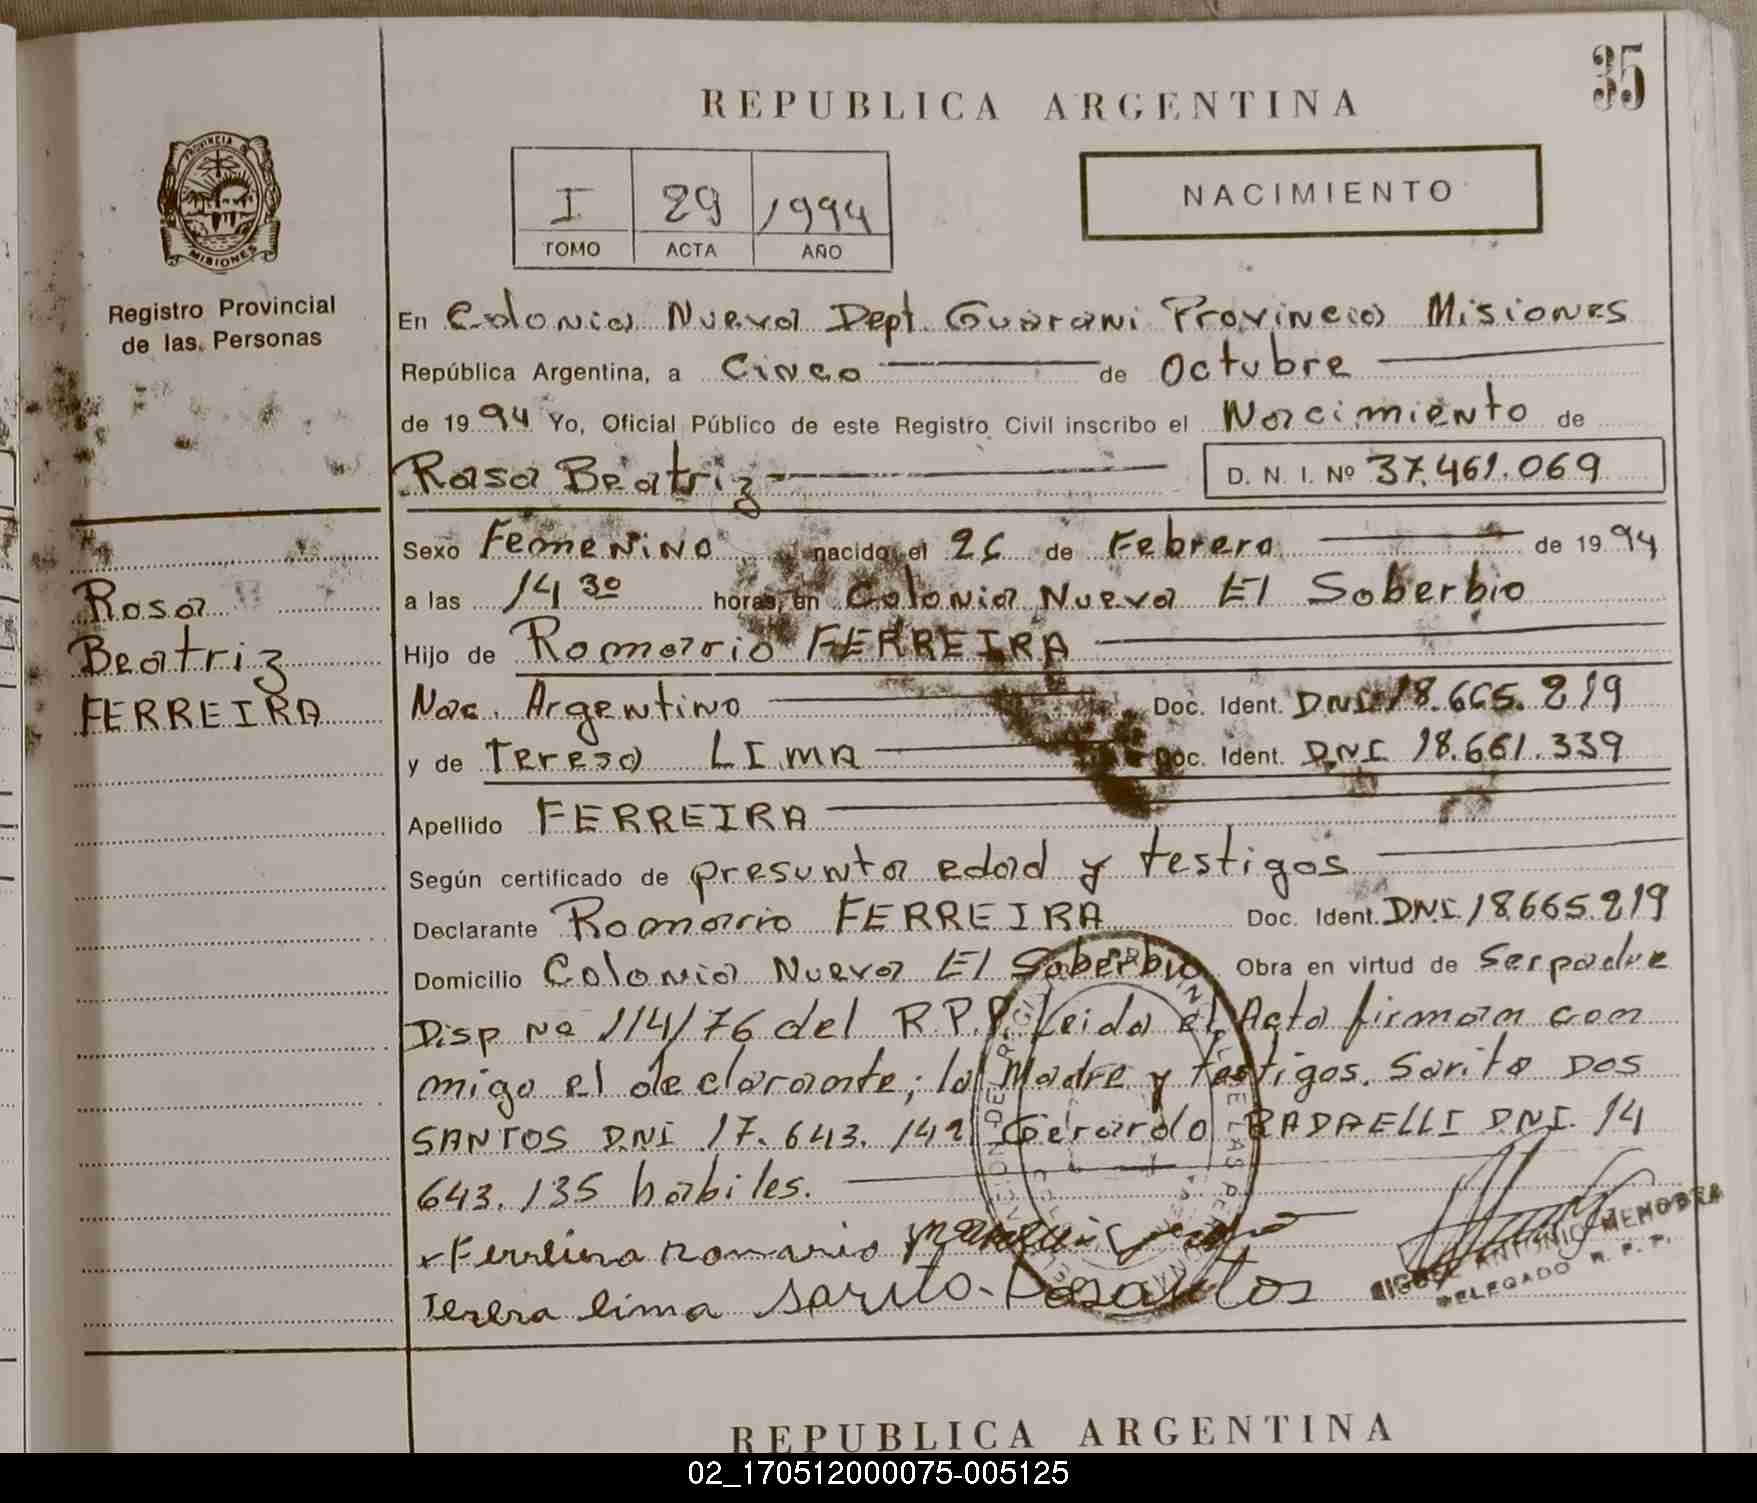 35
REPUBLICA ARGENTINA
PROVINCIA DE
MISIONES
I 29 1994
TOMO ACTA AÑO
NACIMIENTO
Registro Provincial
de las Personas
En Colonia Nueva Dept. Guarani Provincia Misiones
República Argentina, a Cinco de Octubre
de 1994 Yo, Oficial Público de este Registro Civil inscribo el Nacimiento de
Rosa Beatriz D. N. I. Nº 37.461.069
Rosa
Beatriz
FERREIRA
Sexo Femenino nacido el 26 de Febrero de 1994
a las 14 30 horas, en Colonia Nueva El Soberbio
Hijo de Romario FERREIRA
Nac. Argentino Doc. Ident. DNI 18.665.219
y de Teresa LIMA Doc. Ident. DNI 18.661.339
Apellido FERREIRA
Según certificado de presunta edad y testigos
Declarante Romario FERREIRA Doc. Ident. DNI 18665.219
Domicilio Colonia Nueva El Soberbio Obra en virtud de Ser padre
Disp Nº 114/76 del R.P.P. Leida el Acta firman con
migo el declarante, la Madre y testigos. Sarito DOS
SANTOS DNI 17.643.142 Gerardo DNI. 14
643.135 habiles.
Ferreira romario
Teresa lima Sarito Dosantos
ANTONIO MENOBRA
DELEGADO R. P. P.
REPUBLICA ARGENTINA
02_170512000075-005125